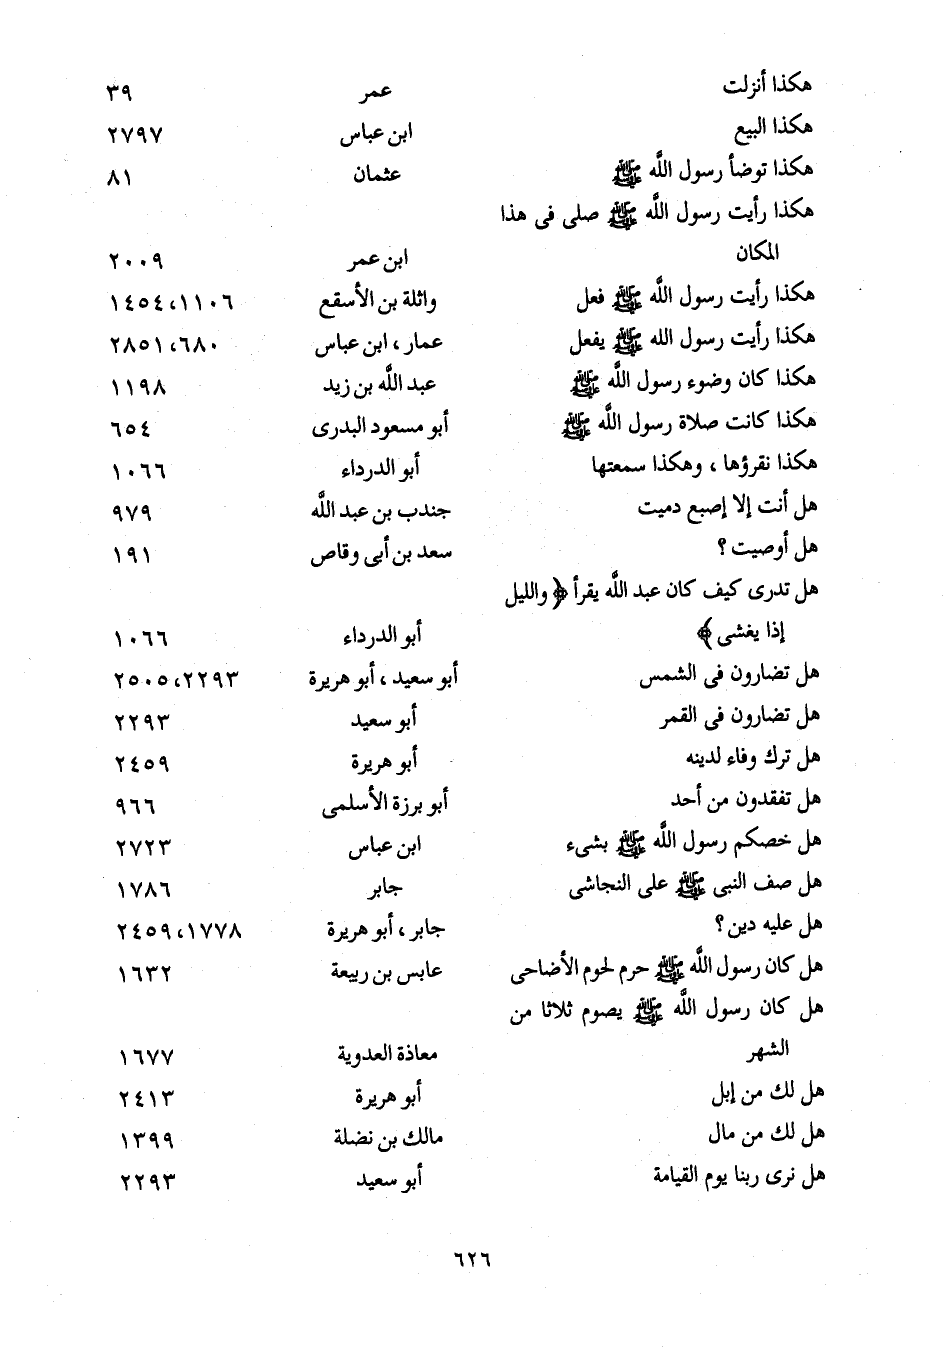 هكذا أنزلت عمر ٣٩
هكذا البيع ابن عباس ٢٧٩٧
هكذا توضأ رسول اللَّه ﷺ عثمان ٨١
هكذا رأيت رسول اللَّه ﷺ صلى فى هذا
المكان ابن عمر ٢٠٠٩
هكذا رأيت رسول اللَّه ﷺ فعل واثلة بن الأسقع ١٤٥٤،١١٠٦
هكذا رأيت رسول الله ﷺ يفعل عمار ، ابن عباس ٢٨٥١،٦٨٠
هكذا كان وضوء رسول اللَّه ﷺ عبد اللَّه بن زيد ١١٩٨
هكذا كانت صلاة رسول اللَّه ﷺ أبو مسعود البدرى ٦٥٤
هكذا نقرؤها ، وهكذا سمعتها أبو الدرداء ١٠٦٦
هل أنت إلا إصبع دميت جندب بن عبد اللَّه ٩٧٩
هل أوصيت ؟ سعد بن أبى وقاص ١٩١
هل تدرى كيف كان عبد اللَّه يقرأ ﴿ والليل
إذا يغشى ﴾ أبو الدرداء ١٠٦٦
هل تضارون فى الشمس أبو سعيد ، أبو هريرة ٢٥٠٥،٢٢٩٣
هل تضارون فى القمر أبو سعيد ٢٢٩٣
هل ترك وفاء لدينه أبو هريرة ٢٤٥٩
هل تفقدون من أحد أبو برزة الأسلمى ٩٦٦
هل خصكم رسول اللَّه ﷺ بشىء ابن عباس ٢٧٢٣
هل صف النبى ﷺ على النجاشى جابر ١٧٨٦
هل عليه دين؟ جابر ، أبو هريرة ٢٤٥٩،١٧٧٨
هل كان رسول اللَّه ﷺ حرم لحوم الأضاحى عابس بن ربيعة ١٦٣٢
هل كان رسول اللَّه ﷺ يصوم ثلاثا من
الشهر معاذة العدوية ١٦٧٧
هل لك من إبل أبو هريرة ٢٤١٣
هل لك من مال مالك بن نضلة ١٣٩٩
هل نرى ربنا يوم القيامة أبو سعيد ٢٢٩٣
٦٢٦